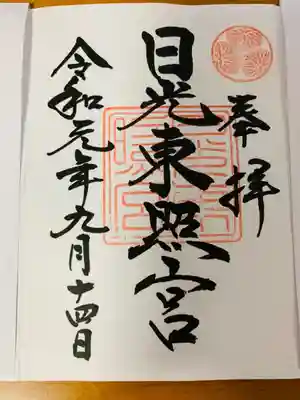 奉拝
日光東照宮
令和元年九月十四日